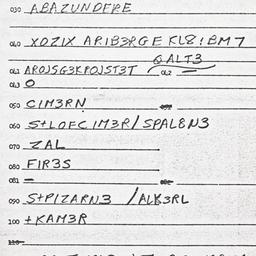 030 ABAZUNDEPE
040 XOZIX ARIB3RGE KL8!BM7
QALT3
041 AROJSG3KPOJST3T 042 —
043 O
050 CIM3RN
060 S+LOFCIM3R/SPAL8N3
070 ZAL
080 FIR3S
081 —
090 S+PIZARN3 /ALK3RL
100 +KAM3R
110